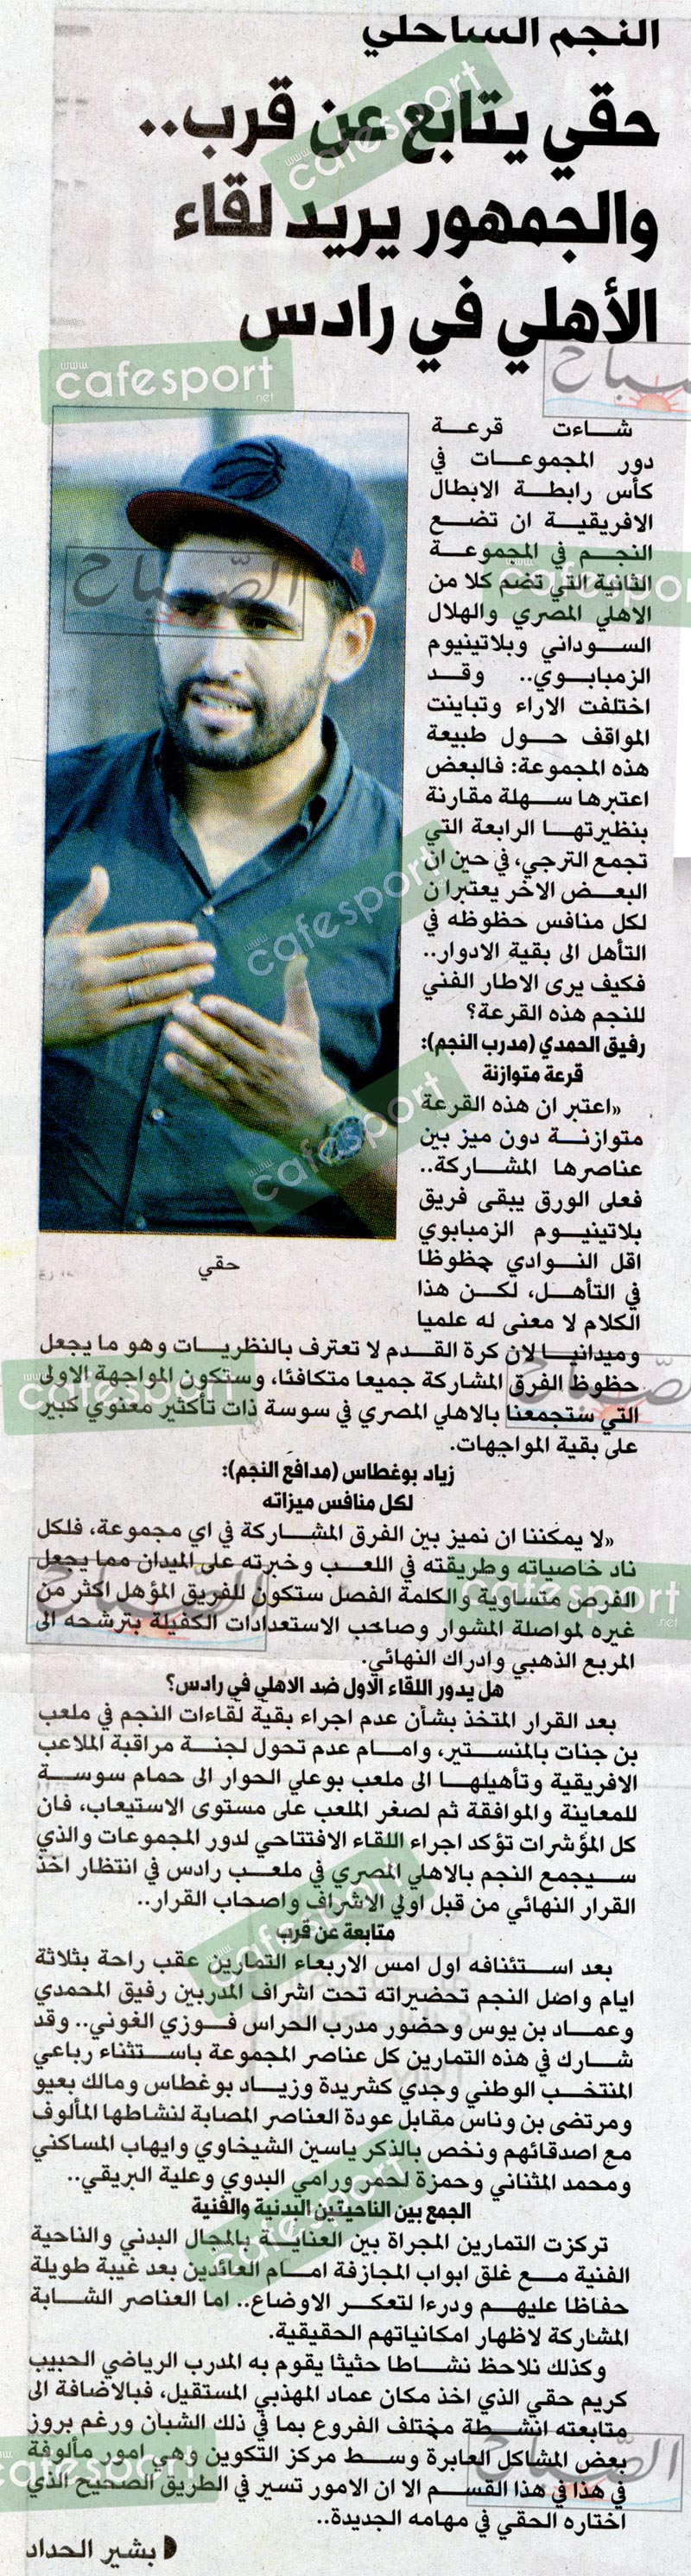 النجم الساحلي
حقي يتابع عن قرب..
والجمهور يريد لقاء
الأهلي في رادس
شاءت قرعة
دور المجموعات في
كأس رابطة الابطال
الافريقية ان تضع
النجم في المجموعة
الثانية التي تضم كلا من
الاهلي المصري والهلال
السوداني وبلاتينيوم
الزمبابوي.. وقد
اختلفت الاراء وتباينت
المواقف حول طبيعة
هذه المجموعة: فالبعض
اعتبرها سهلة مقارنة
بنظيرتها الرابعة التي
تجمع الترجي، في حين ان
البعض الاخر يعتبر ان
لكل منافس حظوظه في
التأهل الى بقية الادوار..
فكيف يرى الاطار الفني
للنجم هذه القرعة؟
رفيق الحمدي (مدرب النجم):
قرعة متوازنة
«اعتبر ان هذه القرعة
متوازنة دون ميز بين
عناصرها المشاركة..
فعلى الورق يبقى فريق
بلاتينيوم الزمبابوي
اقل النوادي حظوظا
في التأهل، لكن هذا
الكلام لا معنى له علميا
وميدانيا لان كرة القدم لا تعترف بالنظريات وهو ما يجعل
حظوظ الفرق المشاركة جميعا متكافئا، وستكون المواجهة الاولى
التي ستجمعنا بالاهلي المصري في سوسة ذات تأكثير معنوي كبير
على بقية المواجهات.
حقي
زياد بوغطاس (مدافع النجم):
لكل منافس ميزاته
«لا يمكننا ان نميز بين الفرق المشاركة في اي مجموعة، فلكل
ناد خاصياته وطريقته في اللعب وخبرته على الميدان مما يجعل
الفرص متساوية والكلمة الفصل ستكون للفريق المؤهل اكثر من
غيره لمواصلة المشوار وصاحب الاستعدادات الكفيلة بترشحه الى
المربع الذهبي وادراك النهائي.
هل يدور اللقاء الاول ضد الاهلي في رادس؟
بعد القرار المتخذ بشأن عدم اجراء بقية لقاءات النجم في ملعب
بن جنات بالمنستير، وامام عدم تحول لجنة مراقبة الملاعب
الافريقية وتأهيلها الى ملعب بوعلي الحوار الى حمام سوسة
للمعاينة والموافقة ثم لصغر الملعب على مستوى الاستيعاب، فان
كل المؤشرات تؤكد اجراء اللقاء الافتتاحي لدور المجموعات والذي
سيجمع النجم بالاهلي المصري في ملعب رادس في انتظار اخذ
القرار النهائي من قبل اولي الاشراف واصحاب القرار..
متابعة عن قرب
بعد استئنافه اول امس الاربعاء التمارين عقب راحة بثلاثة
ايام واصل النجم تحضيراته تحت اشراف المدربين رفيق المحمدي
وعماد بن يوس وحضور مدرب الحراس فوزي الغوني.. وقد
شارك في هذه التمارين كل عناصر المجموعة باستثناء رباعي
المنتخب الوطني وجدي كشريدة وزياد بوغطاس ومالك بعيو
ومرتضى بن وناس مقابل عودة العناصر المصابة لنشاطها المألوف
مع اصدقائهم ونخص بالذكر ياسين الشيخاوي وايهاب المساكني
ومحمد المثناني وحمزة لحمر ورامي البدوي وعلية البريقي..
الجمع بين الناحيتين البدنية والفنية
تركزت التمارين المجراة بين العناية بالمجال البدني والناحية
الفنية مع غلق ابواب المجازفة امام العائدين بعد غيبة طويلة
حفاظا عليهم ودرءا لتعكر الاوضاع.. اما العناصر الشابة
المشاركة لاظهار امكانياتهم الحقيقية.
وكذلك نلاحظ نشاطا حثيثا يقوم به المدرب الرياضي الحبيب
كريم حقي الذي اخذ مكان عماد المهذبي المستقيل، فبالاضافة الى
متابعته انشطة مختلف الفروع بما في ذلك الشبان ورغم بروز
بعض المشاكل العابرة وسط مركز التكوين وهي امور مألوفة
في هذا في هذا القسم الا ان الامور تسير في الطريق الصحيح الذي
اختاره الحقي في مهامه الجديدة..
بشير الحداد
www.cafesport.net
الصباح